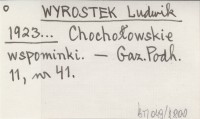 WYROSTEK Ludwik
1923... Chochołowskie
wspominki. — Gaz. Podh.
11, nr 41.